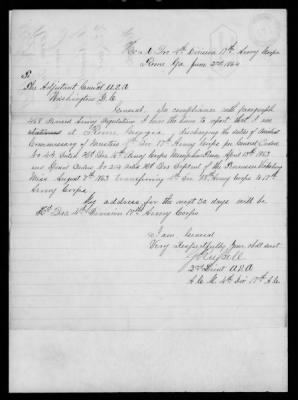 Head Qrs 4th Division 17th Army Corps
Rome Ga June 3rd 1864
The Adjutant General U.S.A.
Washington D.C.
General, In compliance with paragraph
468 Revised Army Regulations I have the honor to report that I am
stationed at Rome Georgia, discharging the duties of
Commissary of Musters 4th Div 17th Army Corps per General Orders
No 44 dated Hd Qrs 16th Army Corps Memphis Tenn April 13th 1863
and Special Orders No 214 dated Hd Qrs Dept of the Tennessee Vicksburg
Miss August 7th 1863 transferring 4th Div 16th Army Corps to 17th
Army Corps.
My address for the next 30 days will be
Hd Qrs 4th Division 17th Army Corps
I am General
Very Respectfully Your obdt servt
2nd Lieut
A.C.M. 4th Div 17th A.C.